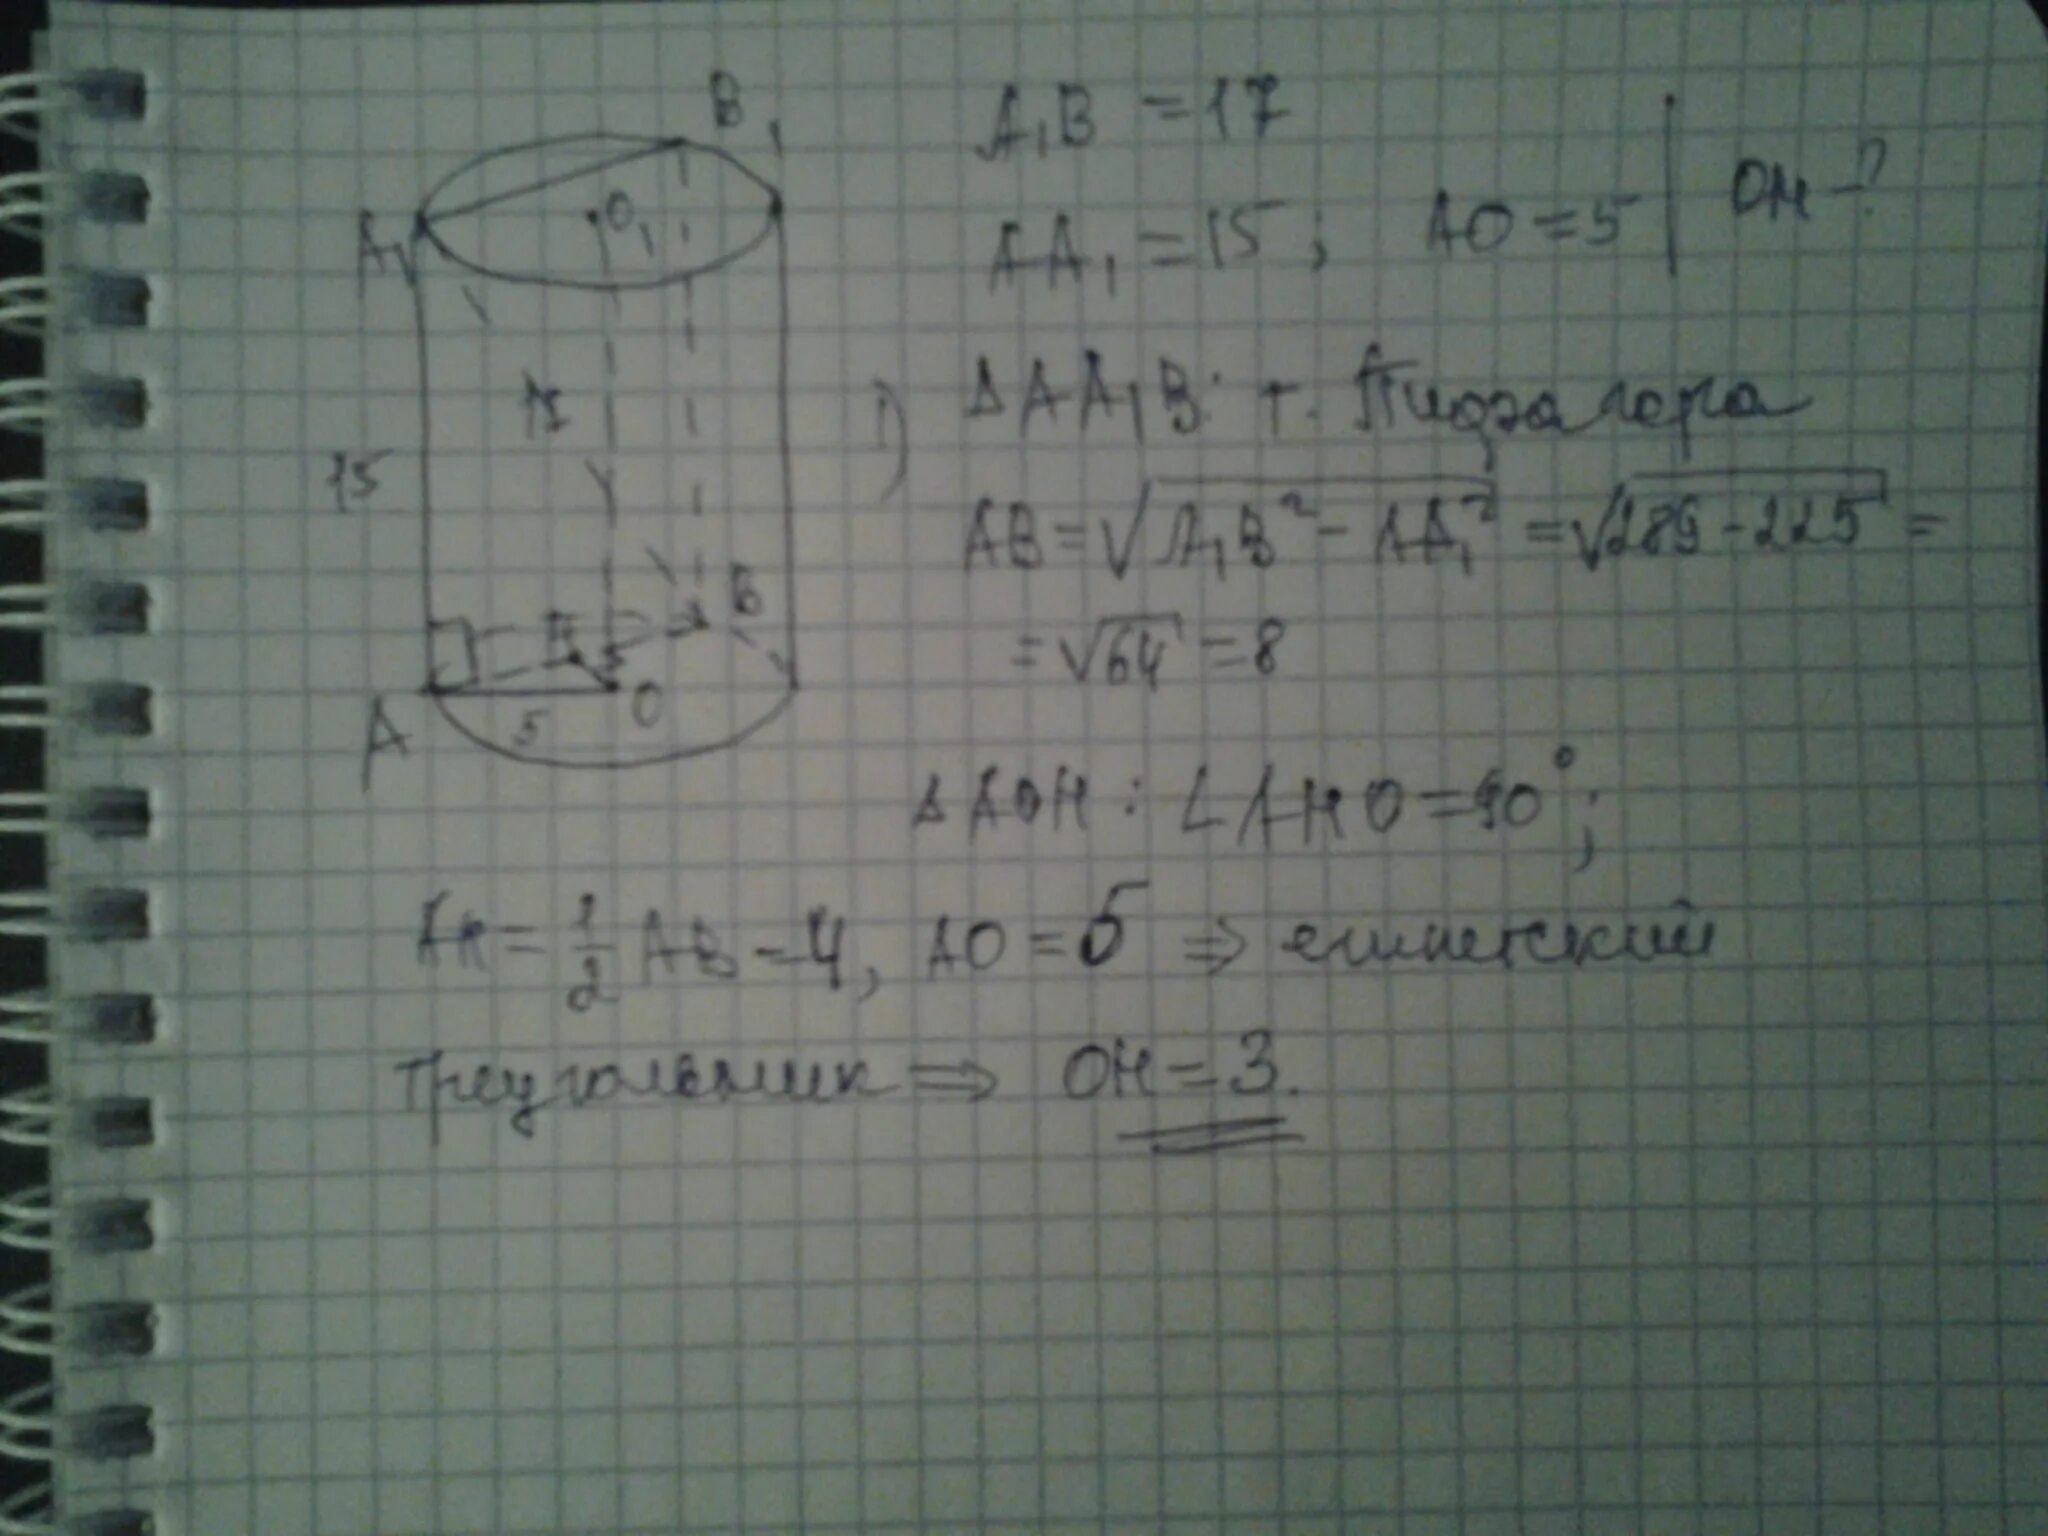 B₁
A₁B = 17
A₁
O₁
AA₁ = 15; AO = 5
OH - ?
1) ΔAA₁B: т. Пифагора
15
AB = √(A₁B² - AA₁²) = √(289 - 225) =
B
= √64 = 8
H
A
5
O
ΔAOH: ∠AHO = 90°;
AH = 1/2 AB = 4, AO = 5 ⇒ египетский
треугольник ⇒ OH = 3.